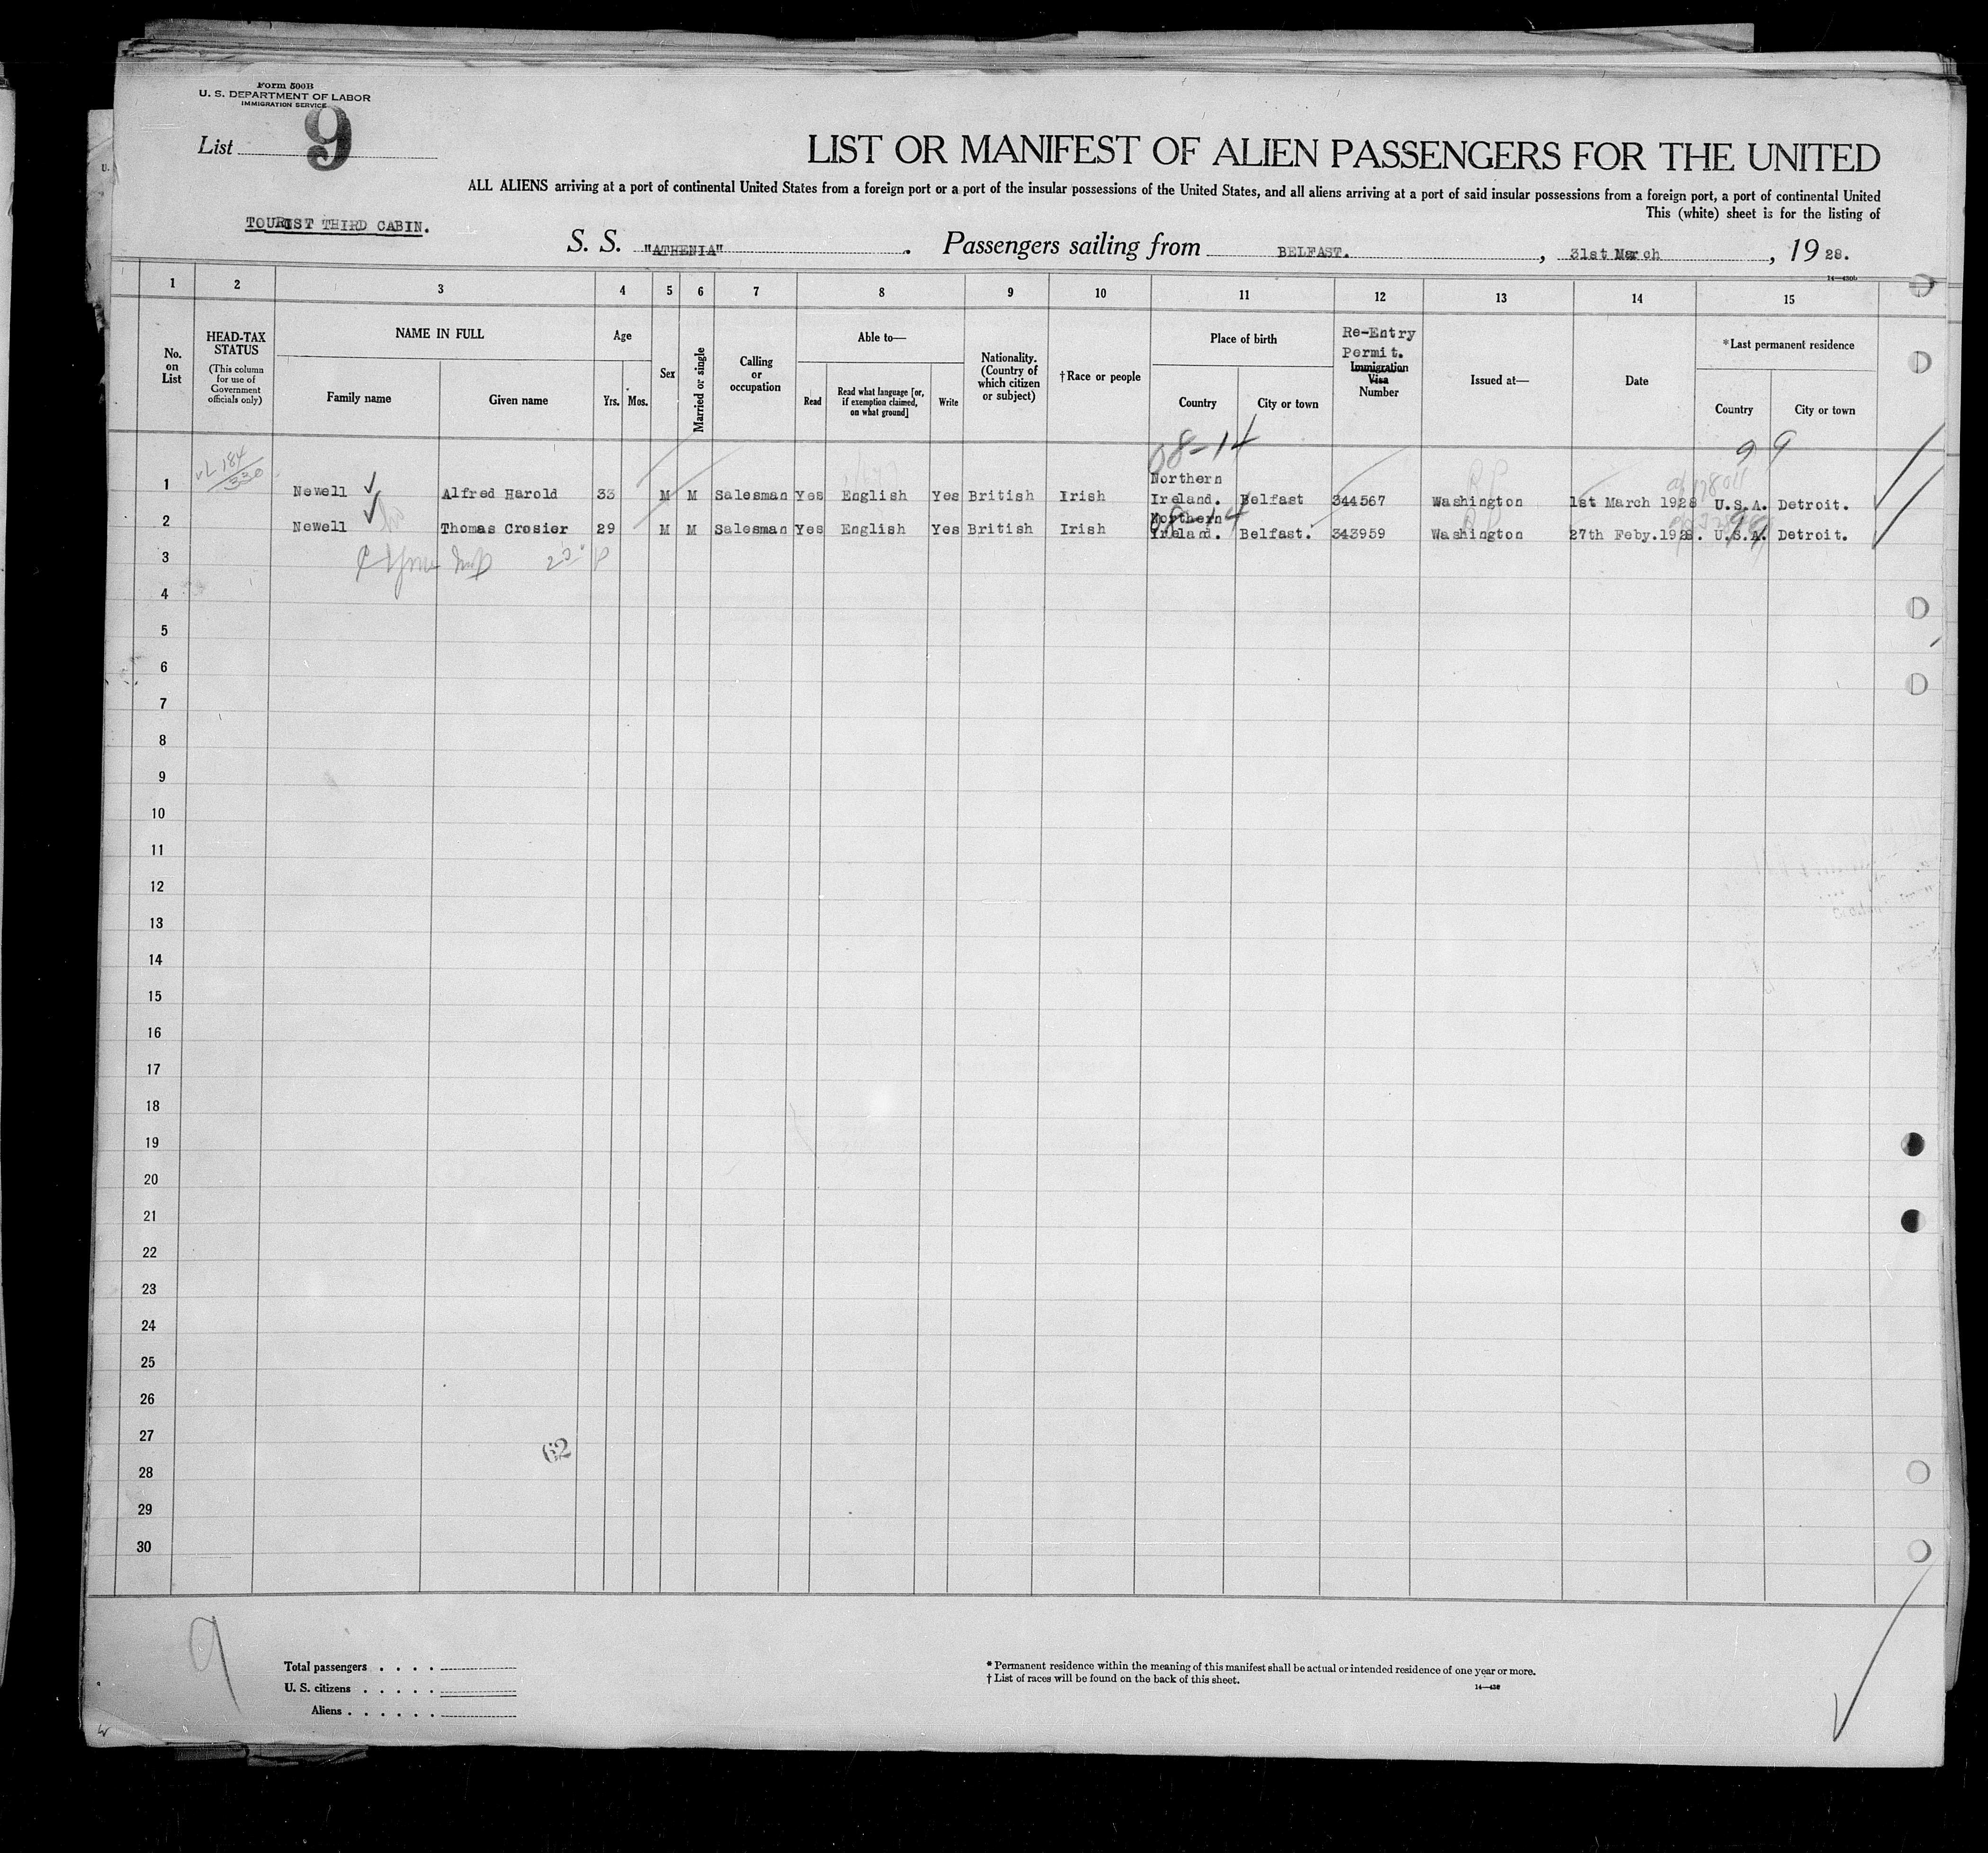 Form 500B
U. S. DEPARTMENT OF LABOR
IMMIGRATION SERVICE
List 9
LIST OR MANIFEST OF ALIEN PASSENGERS FOR THE UNITED
ALL ALIENS arriving at a port of continental United States from a foreign port or a port of the insular possessions of the United States, and all aliens arriving at a port of said insular possessions from a foreign port, a port of continental United
This (white) sheet is for the listing of
TOURIST THIRD CABIN.
S. S. "ATHENIA". Passengers sailing from BELFAST., 31st March, 1928.
14—430b
1 2 3 4 5 6 7 8 9 10 11 12 13 14 15
No. on List
HEAD-TAX STATUS
(This column for use of Government officials only)
NAME IN FULL
Family name
Given name
Age
Yrs. Mos.
Sex
Married or single
Calling or occupation
Able to—
Read
Read what language [or, if exemption claimed, on what ground]
Write
Nationality. (Country of which citizen or subject)
†Race or people
Place of birth
Country
City or town
Re-Entry Permit.
Immigration Visa
Number
Issued at—
Date
*Last permanent residence
Country
City or town
08-14
9 9
184/330
1 Newell Alfred Harold 33 M M Salesman Yes English Yes British Irish Northern Ireland. Belfast 344567 Washington 1st March 1928 U.S.A. Detroit.
08-14
2 Newell Thomas Crosier 29 M M Salesman Yes English Yes British Irish Northern Ireland. Belfast. 343959 Washington 27th Feby.1928. U.S.A. Detroit.
3
4
5
6
7
8
9
10
11
12
13
14
15
16
17
18
19
20
21
22
23
24
25
26
27
62
28
29
30
9
Total passengers . . . .
U. S. citizens . . . . .
Aliens . . . . . .
* Permanent residence within the meaning of this manifest shall be actual or intended residence of one year or more.
† List of races will be found on the back of this sheet.
14—430